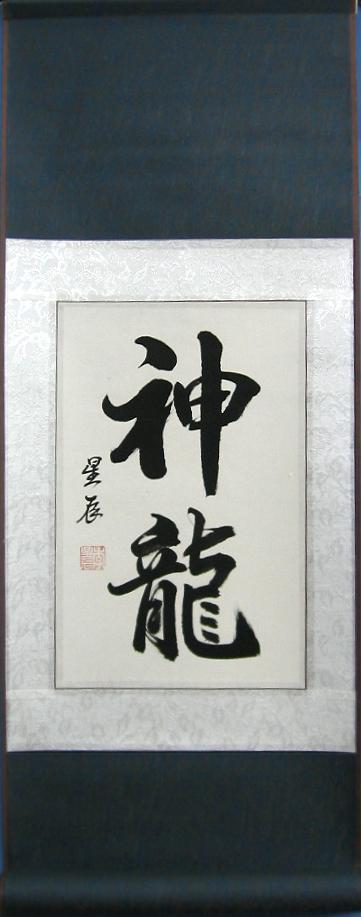 神龍
星辰